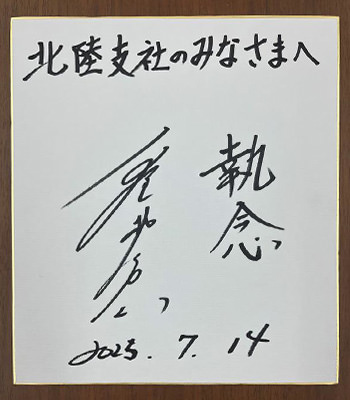 北陸支社のみなさまへ
執念
2025. 7. 14